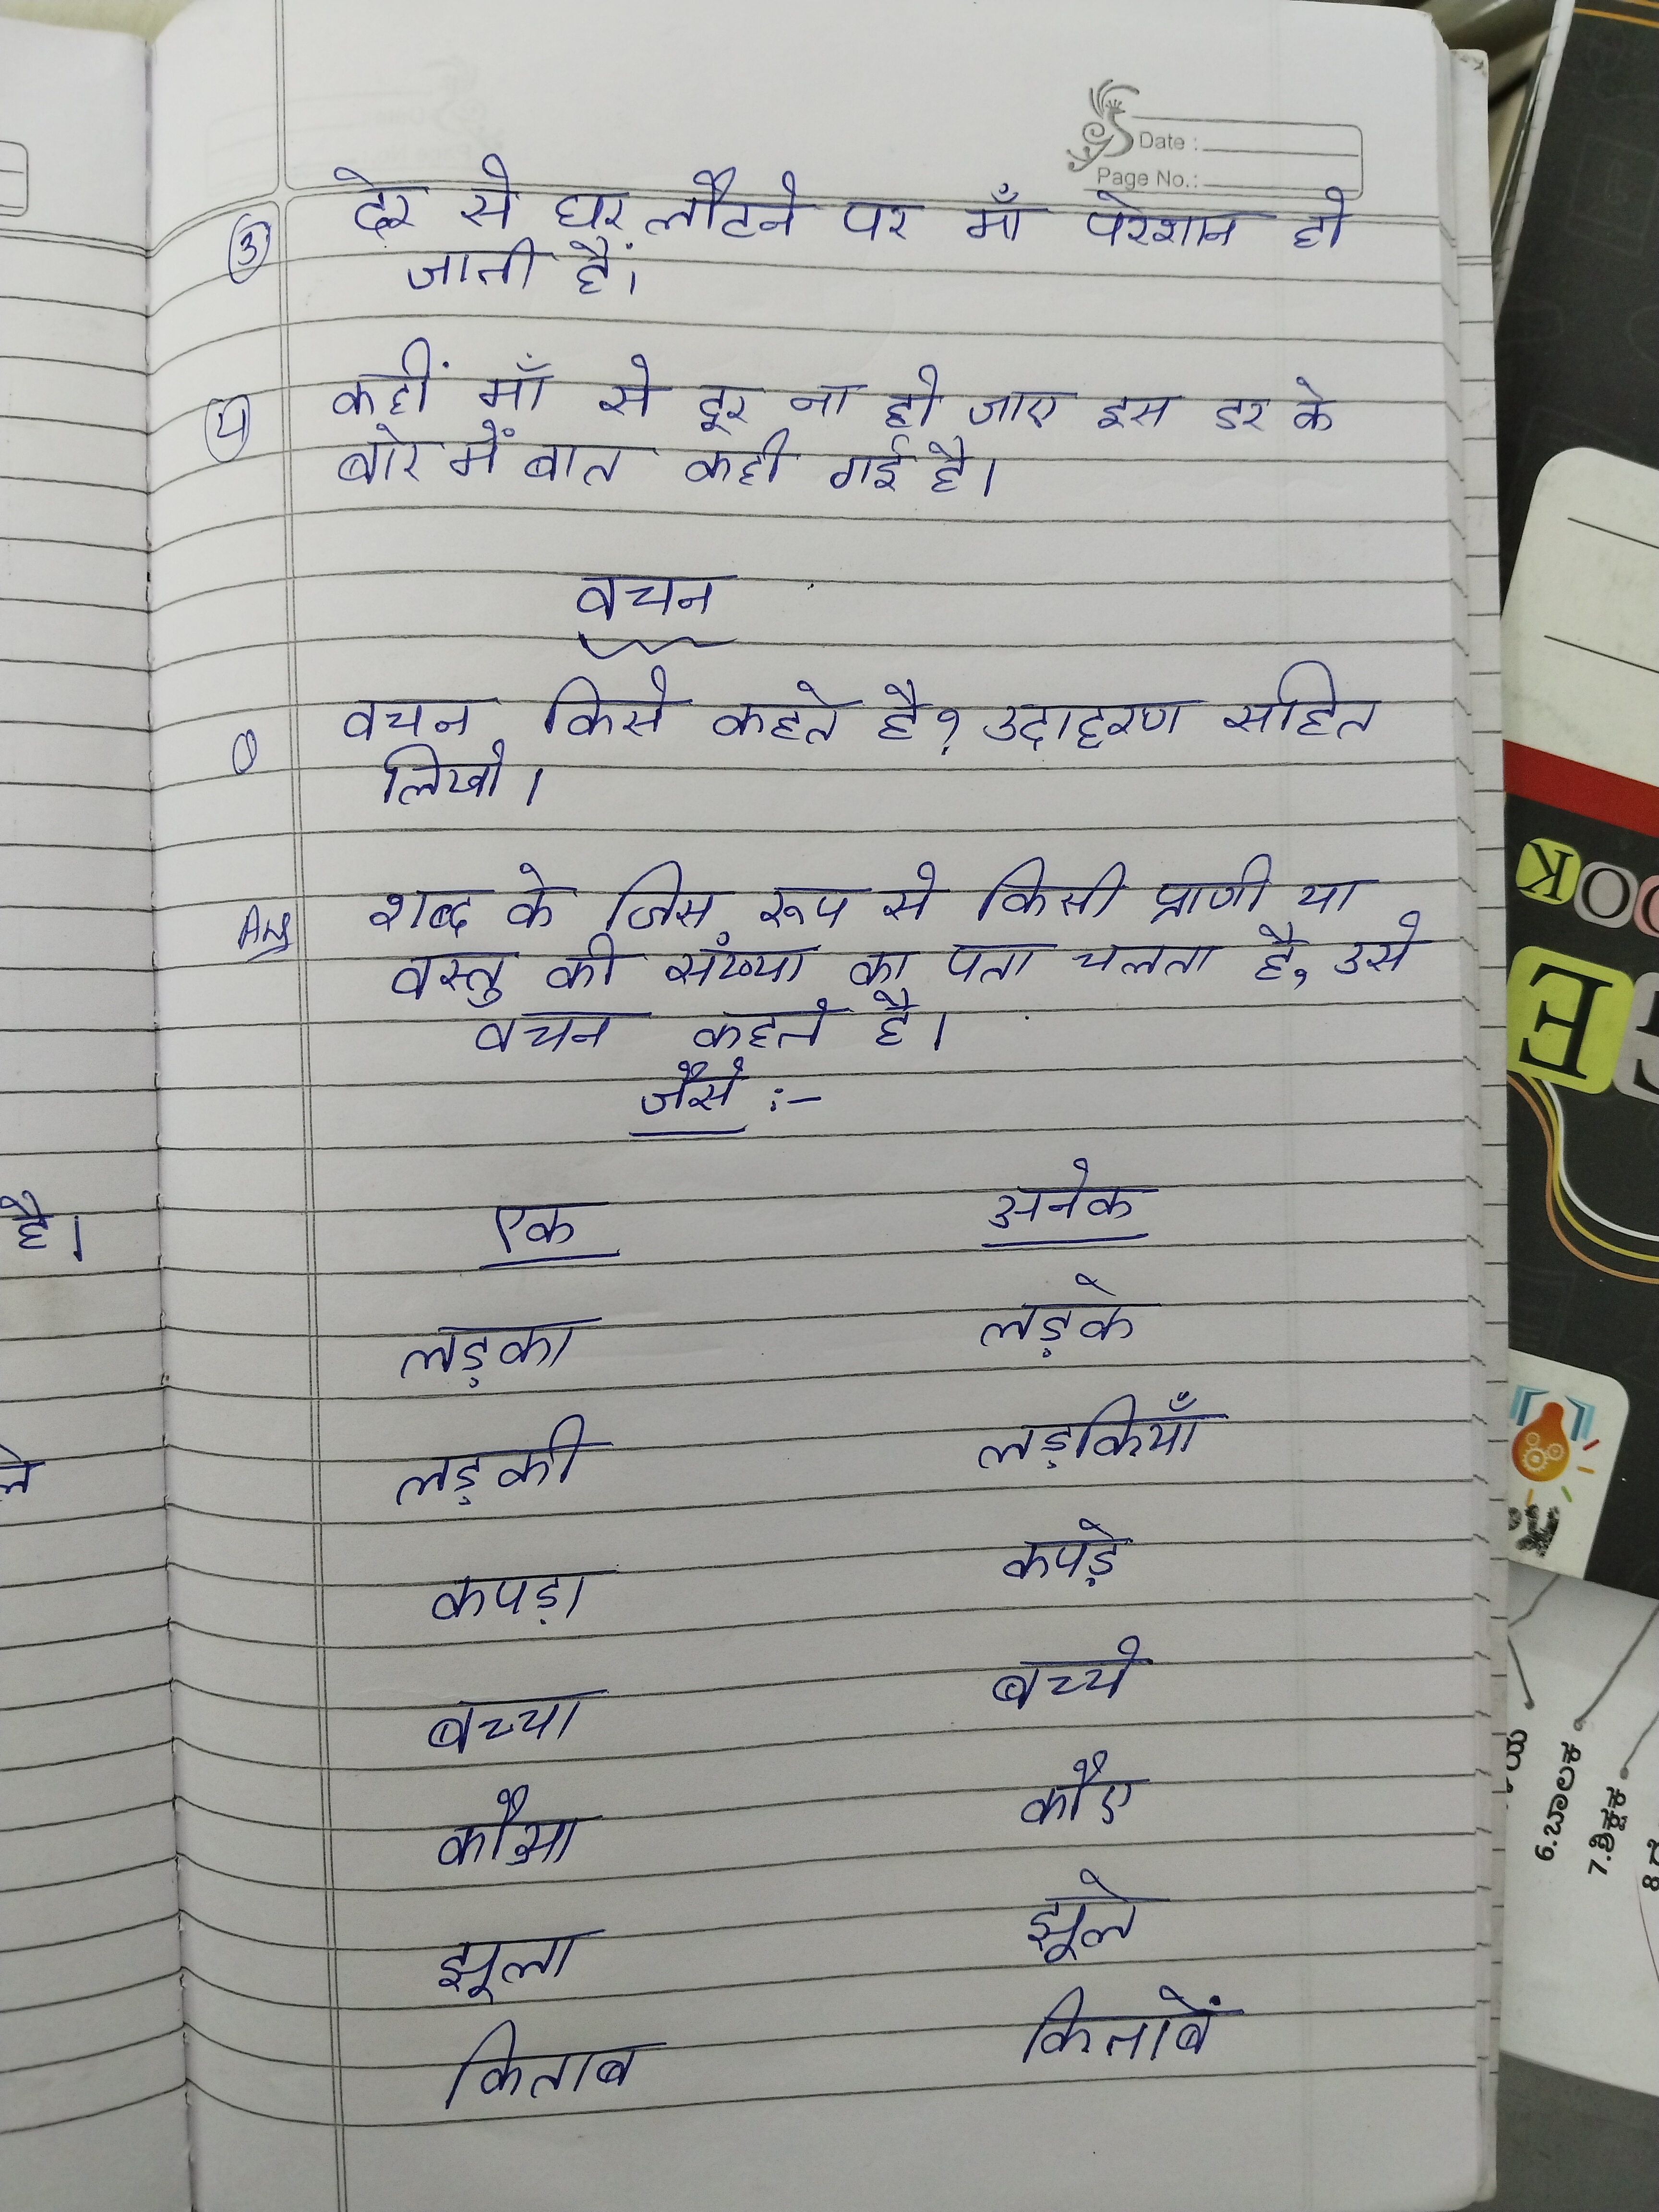 Date :
Page No.:
③ देर से घर लौटने पर माँ परेशान हो
जाती हैं।
④ कहीं माँ से दूर ना हो जाए इस डर के
बारे में बात कही गई है।
वचन
वचन किसे कहते है? उदाहरण सहित
लिखो।
Ans शब्द के जिस रूप से किसी प्राणी या
वस्तु की संख्या का पता चलता है, उसे
वचन कहते है।
जैसे :-
एक अनेक
लड़का लड़के
लड़की लड़कियाँ
कपड़ा कपड़े
बच्चा बच्चे
कौआ कौए
झूला झूले
किताब किताबें
है।
OOK
E
6.ಬಾಲಕ
7.ಶಿಕ್ಷಕ